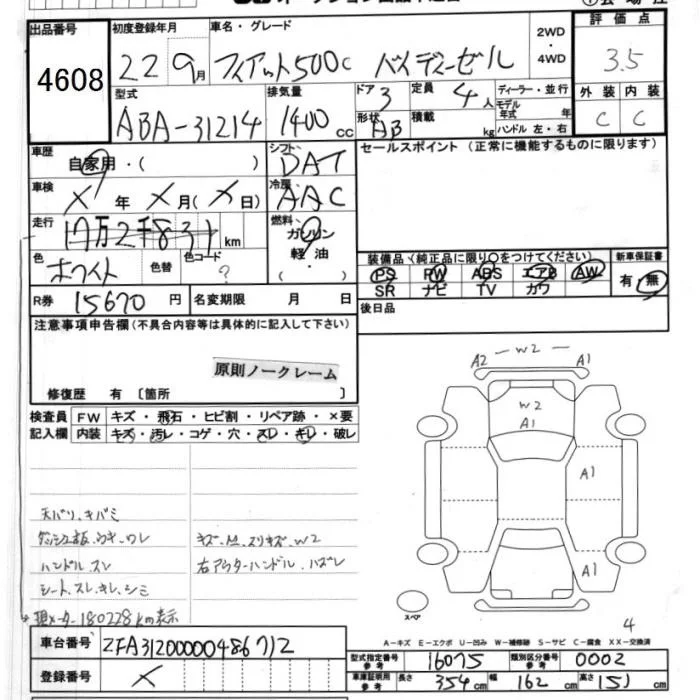 出品番号 初度登録年月 車名・グレード 2WD・4WD 評価点
4608 22 9月 フィアット500C バイディーゼル 3.5
型式 排気量 ドア 3 定員 4人 ディーラー・並行 外装 内装
ABA-31214 1400cc 形状 AB 積載 kg モデル年式 年 ハンドル 左・右 C C
車歴 自家用・( ) シフト DAT セールスポイント(正常に機能するものに限ります)
車検 X年 X月(X日) 冷房 AAC
走行 17万2千831km 燃料 ガソリン 軽油・( )
色 ホワイト 色替 色コード ? 装備品(純正品に限り○をつけてください) 新車保証書
PS PW ABS エアB AW 有・無
SR ナビ TV カワ
R券 15670円 名変期限 月 日 後日品
注意事項申告欄(不具合内容等は具体的に記入して下さい)
原則ノークレーム
修復歴 有〔箇所 〕
検査員 FW キズ・飛石・ヒビ割・リペア跡・×要
記入欄 内装 キズ・汚レ・コゲ・穴・スレ・キレ・破レ
天バリ、キバミ
ダッシュ板、ウキ、ワレ キズ、A1、スリキズ、W2
ハンドル、スレ 右アウターハンドル、ハズレ
シート、スレ、キレ、シミ
現メーター180228km表示
A2 -W2- A1
W2
A1
A1
A1
スペア
4
A-キズ E-エクボ U-凹み W-補修跡 S-サビ C-腐食 XX-交換済
車台番号 ZFA31200000486712
登録番号 X
型式指定番号 参考 16075 類別区分番号 参考 0002
車庫証明用 参考 長さ 354cm 幅 162cm 高さ 151cm